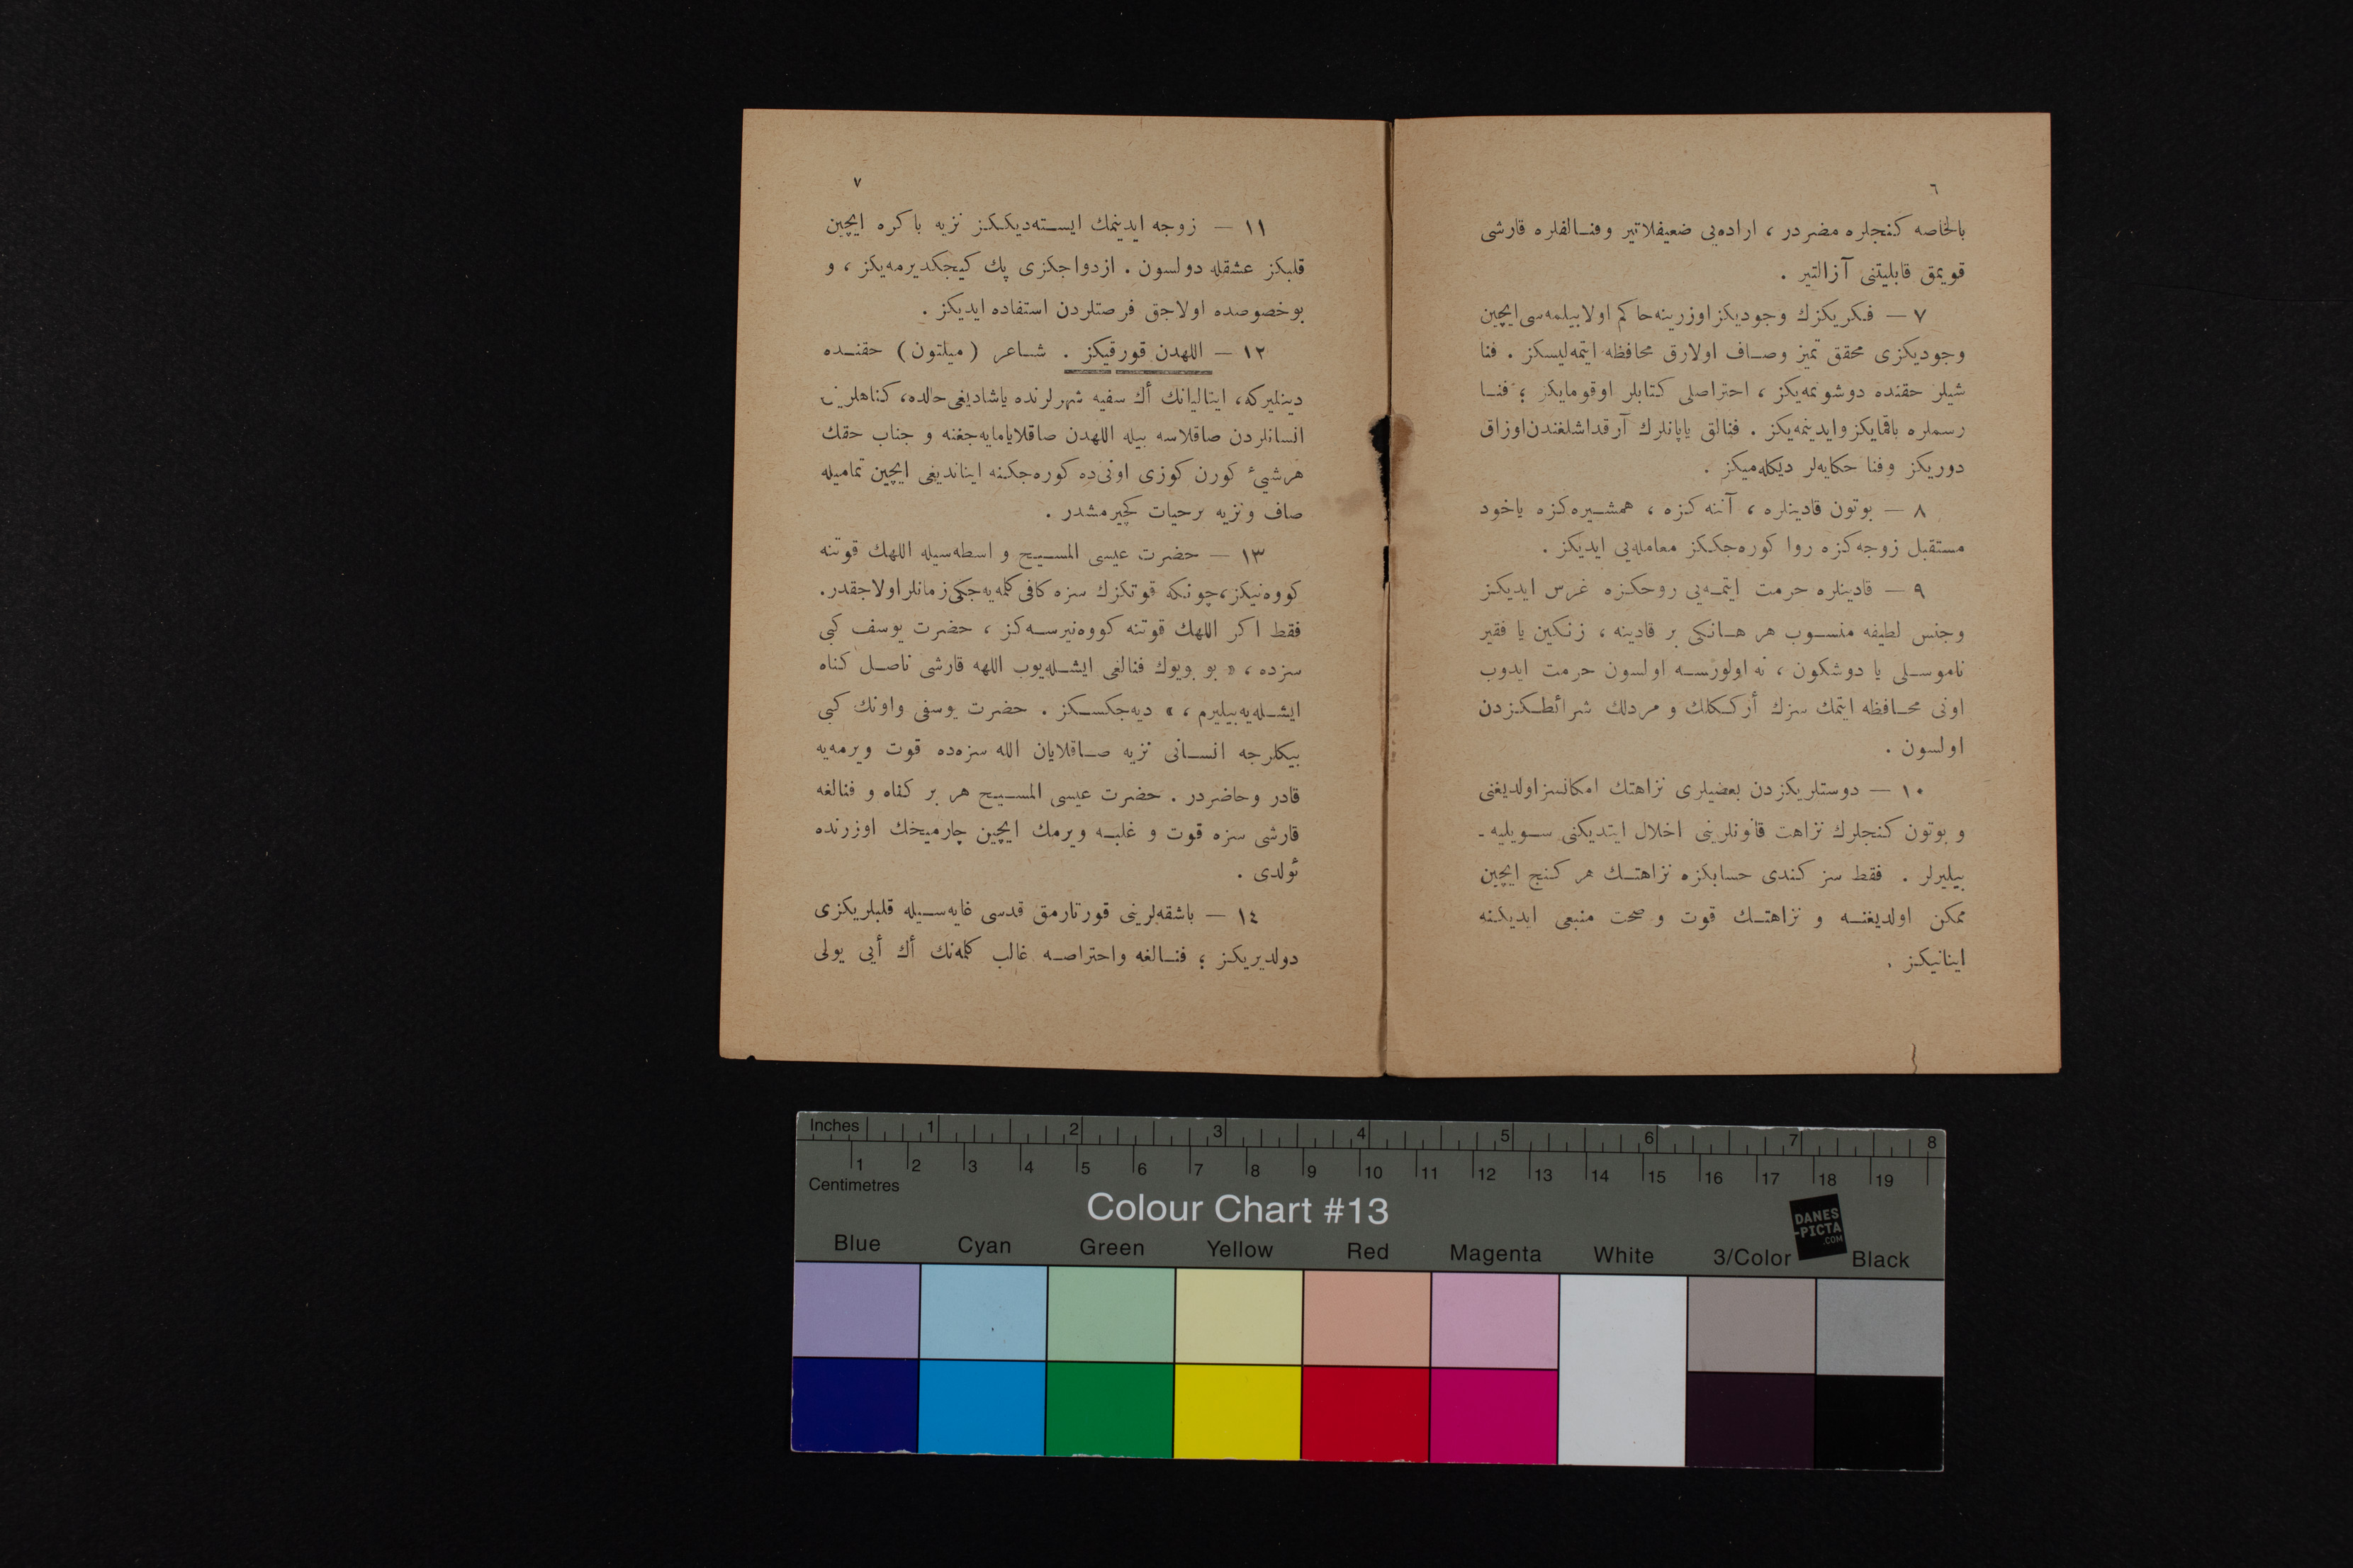 ٦
بالخاصه كنجلره مضردر ، اراده‌یی ضعیفلاتیر وفنـالقلره قارشی
قویمق قابلیتنی آزالتیر .
٧ — فكریكزك وجودیكز اوزرینه حاكم اولابیلمه‌سی ایچین
وجودیكزی محقق تمیز وصـاف اولارق محافظه ایتمه‌لیسكز . فنا
شیلر حقنده دوشونمه‌یكز ، احتراصلی كتابلر اوقومایكز ؛ فنـا
رسملره باقمایكز وایدینمه‌یكز . فنالق یاپانلرك آرقداشلغندن اوزاق
دوریكز وفنا حكایه‌لر دیكله‌میكز .
٨ — بوتون قادینلره ، آننه كزه ، همشـیره‌كزه یاخود
مستقبل زوجه‌كزه روا كوره‌جككز معامله‌یی ایدیكز .
٩ — قادینلره حرمت ایتمـه‌یی روحكزه غرس ایدیكز
وجنس لطیفه منسـوب هر هـانكی بر قادینه ، زنكین یا فقیر
ناموسـلی یا دوشكون ، نه اولورسـه اولسون حرمت ایدوب
اونی محـافظه ایتمك سزك أركـكلك و مردلك شرائطـكزدن
اولسون .
١٠ — دوستلریكزدن بعضیلری نزاهتك امكانسز اولدیغنی
و بوتون كنجلرك نزاهت قانونلرینی اخلال ایتدیكنی سـویلیه ـ
بیلیرلر . فقط سز كندی حسابكزه نزاهتـك هر كنج ایچین
ممكن اولدیغنـه و نزاهتـك قوت و صحت منبعی ایدیكنه
اینانیكز .
٧
١١ — زوجه ایدینمك ایسـته‌دیككز نزیه باكره ایچین
قلبكز عشقله دولسون . ازدواجكزی پك كیجكدیرمه‌یكز ، و
بوخصوصده اولاجق فرصتلردن استفاده ایدیكز .
١٢ — اللهدن قورقیكز . شـاعر ( میلتون ) حقنـده
دینلیركه، ایتالیانك أك سفیه شهرلرنده یاشادیغی حالده، كناهلرینی
انسانلردن صاقلاسه بیله اللهدن صاقلایامایه‌جغنه و جناب حقك
هرشیئ كورن كوزی اونی‌ده كوره‌جكنه ایناندیغی ایچین تمامیله
صاف ونزیه برحیات كچیرمشدر .
١٣ — حضرت عیسی المسـیح واسطه‌سیله اللهك قوتنه
كووه‌نیكز، چونكه قوتكزك سزه كافی كلمه‌یه‌جكی زمانلر اولاجقدر.
فقط اكر اللهك قوتنه كووه‌نیرسـه‌كز ، حضرت یوسف كبی
سزده ، « بو بویوك فنالغی ایشـله‌یوب اللهه قارشی ناصـل كناه
ایشـله‌یه‌بیلیرم ، » دیه‌جكسـكز . حضرت یوسفی واونك كبی
بیكلرجه انسـانی نزیه صـاقلایان الله سزه‌ده قوت ویرمه‌یه
قادر وحاضردر . حضرت عیسی المسـیح هر بر كناه و فنالغه
قارشی سزه قوت و غلبـه ویرمك ایچین چارمیخك اوزرنده
ئولدی .
١٤ — باشقه‌لرینی قورتارمق قدسی غایه‌سـیله قلبلریكزی
دولدیریكز ؛ فنـالغه واحتراصـه غالب كلمه‌نك أك أیی یولی
Inches 1 2 3 4 5 6 7 8
1 2 3 4 5 6 7 8 9 10 11 12 13 14 15 16 17 18 19
Centimetres
Colour Chart #13
DANES
-PICTA
.COM
Blue Cyan Green Yellow Red Magenta White 3/Color Black